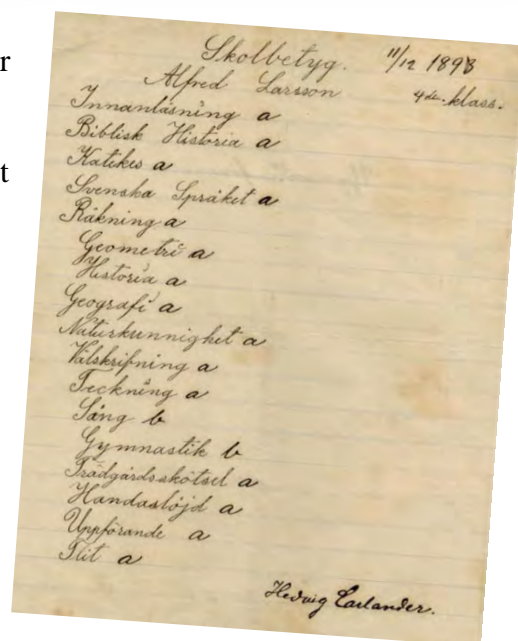 r
t
Skolbetyg. 11/12 1898
Alfred Larsson 4de klass.
Innanläsning a
Biblisk Historia a
Katikes a
Svenska Språket a
Räkning a
Geometri a
Historia a
Geografi a
Naturkunnighet a
Välskrifning a
Teckning a
Sång b
Gymnastik b
Trädgårdsskötsel a
Handaslöjd a
Uppförande a
Flit a
Hedvig Carlander.